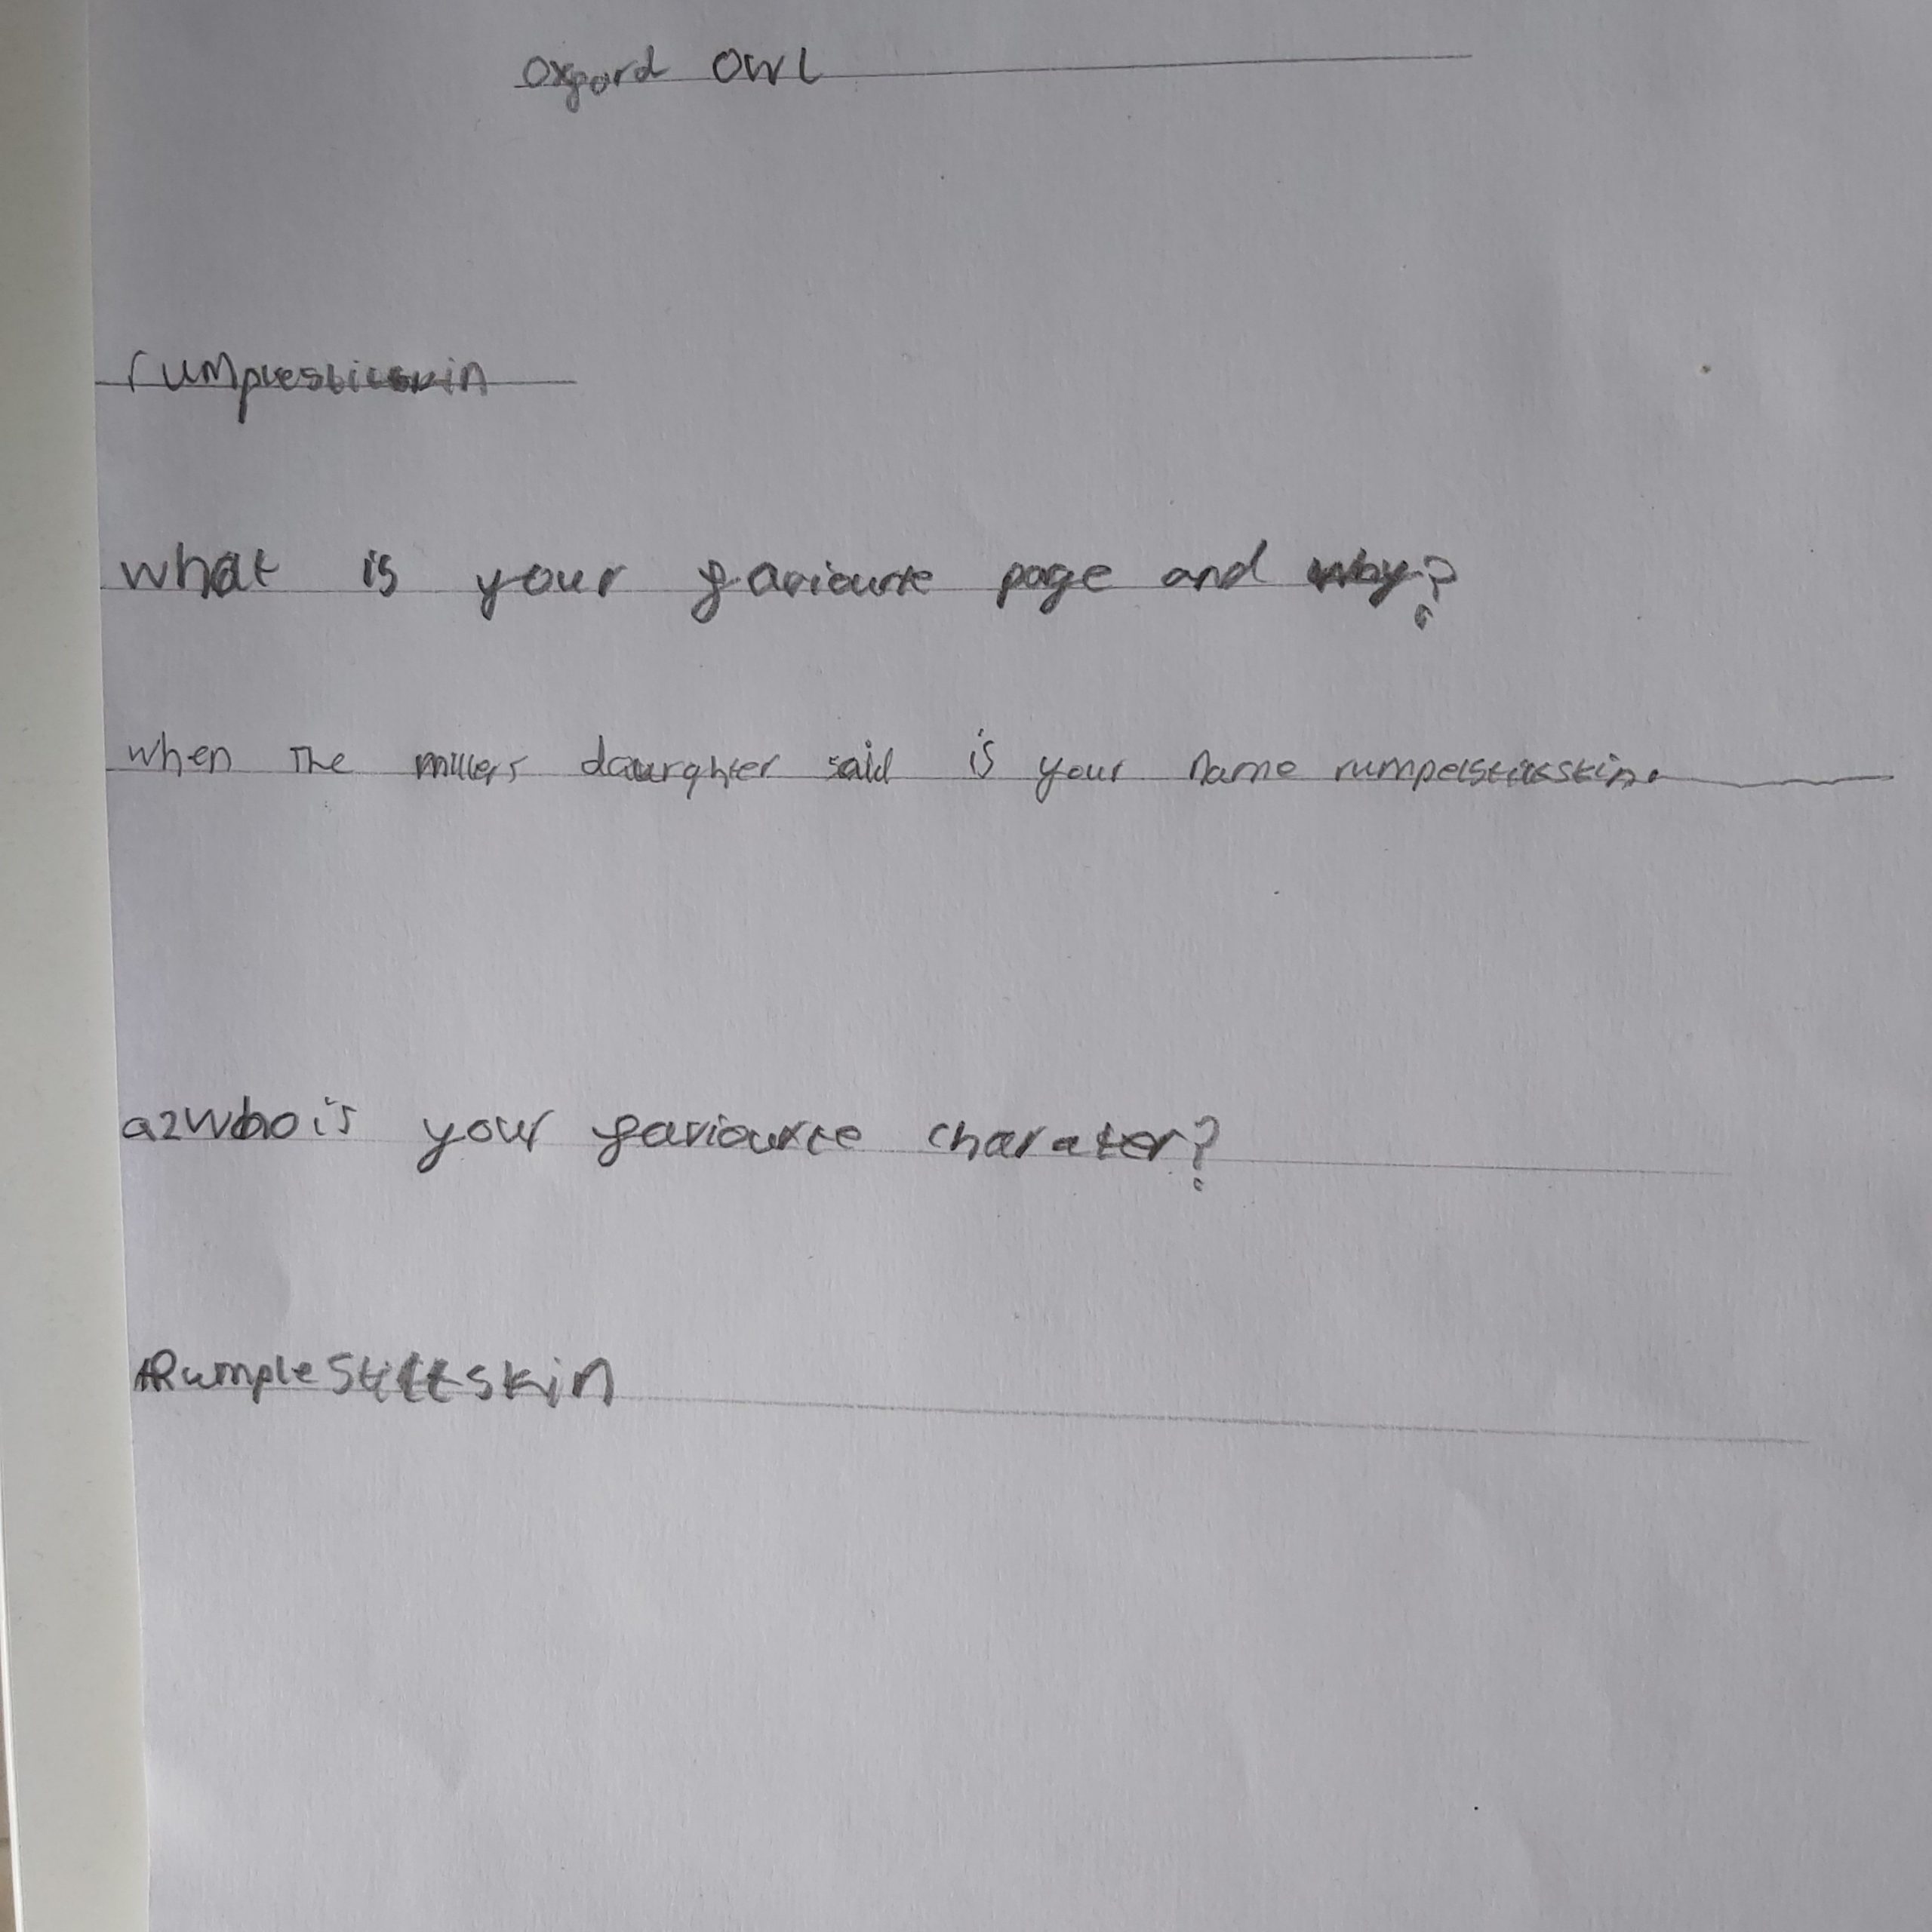 Oxford Owl
rumplestiltskin
what is your faviourte page and why?
when The millers daurghter said is your name rumpelstitsskin.
a2 who is your faviourte charater?
Rumplestiltskin